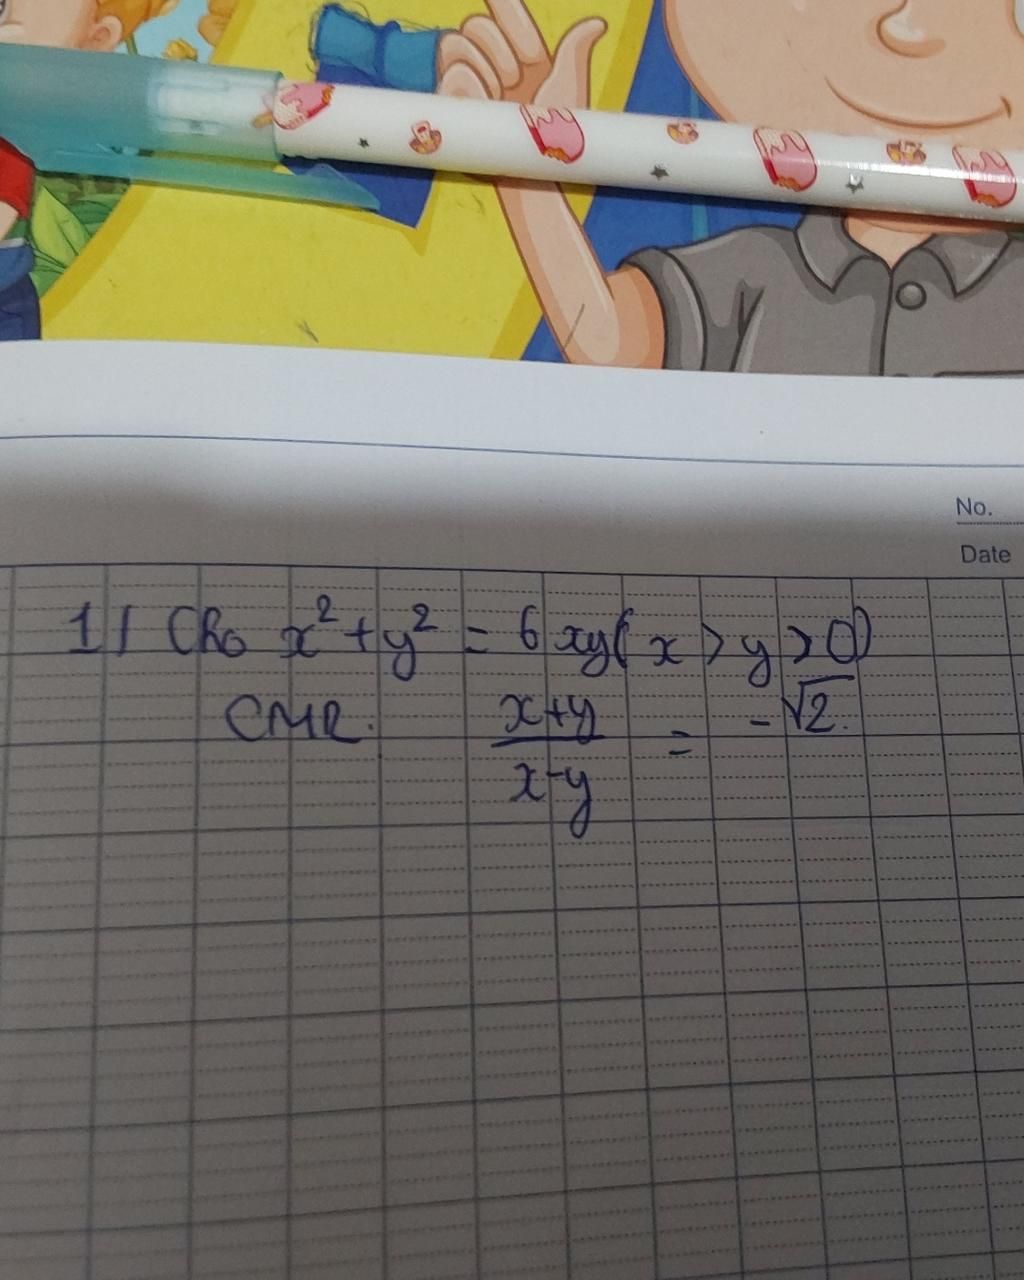 No.
Date
1/ Cho x² + y² = 6xy (x > y > 0)
CMR. x+y/x-y = -√2.